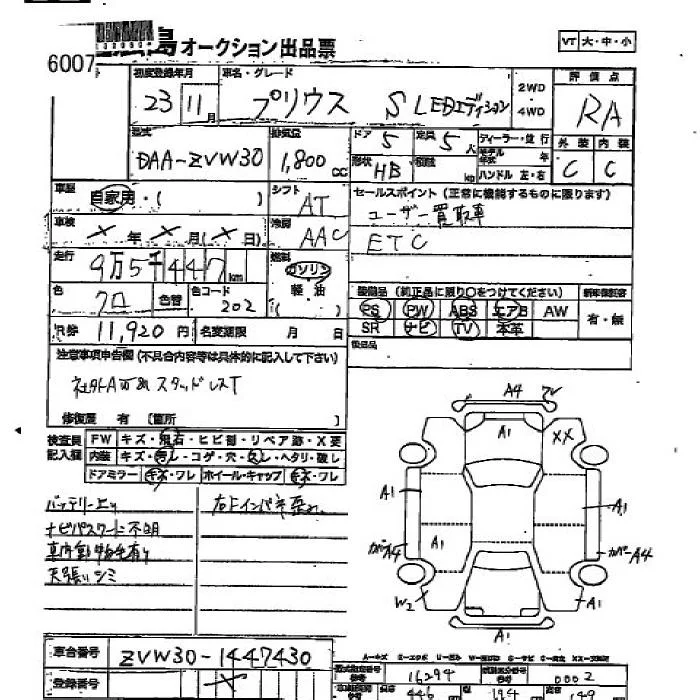 島オークション出品票
VT 大・中・小
6007
初度登録年月 23 11月
車名・グレード プリウス S LEDエディション
2WD・4WD
評価点 RA
型式 DAA-ZVW30
排気量 1,800 CC
ドア 5
定員 5人
ディーラー・並行
モデル年式 年
形状 HB
積載 kg
ハンドル 左・右
外装 C
内装 C
車歴 自家用・( )
シフト AT
セールスポイント(正常に機能するものに限ります)
ユーザー買取車
ETC
車検 ×年×月(×日)
冷房 AAC
走行 9万5千447km
燃料 ガソリン 軽油 ( )
色 クロ
色替
色コード 202
装備品(純正品に限り○をつけてください)
新車保証書 有・無
PS PW ABS エアB AW
SR ナビ TV 本革
R券 11,920円
名変期限 月 日
後日品
注意事項申告欄(不具合内容等は具体的に記入して下さい)
スタッドレスT
修復歴 有 〔箇所 〕
検査員記入欄
FW キズ・飛石・ヒビ割・リペア跡・X要
内装 キズ・汚レ・コゲ・穴・スレ・ヘタリ・破レ
ドアミラー キズ・ワレ ホイール・キャップ キズ・ワレ
バッテリー上り
ナビパスワード不明
車内動物毛有り
天張りシミ
右Fインパネ
A4
A1
XX
A1
A1
カバーA4
A1
カバーA4
W2
A1
A1
車台番号 ZVW30-1447430
登録番号 ×
型式指定番号 16294
類別区分番号 0002
長さ 446
幅 174
高さ 149